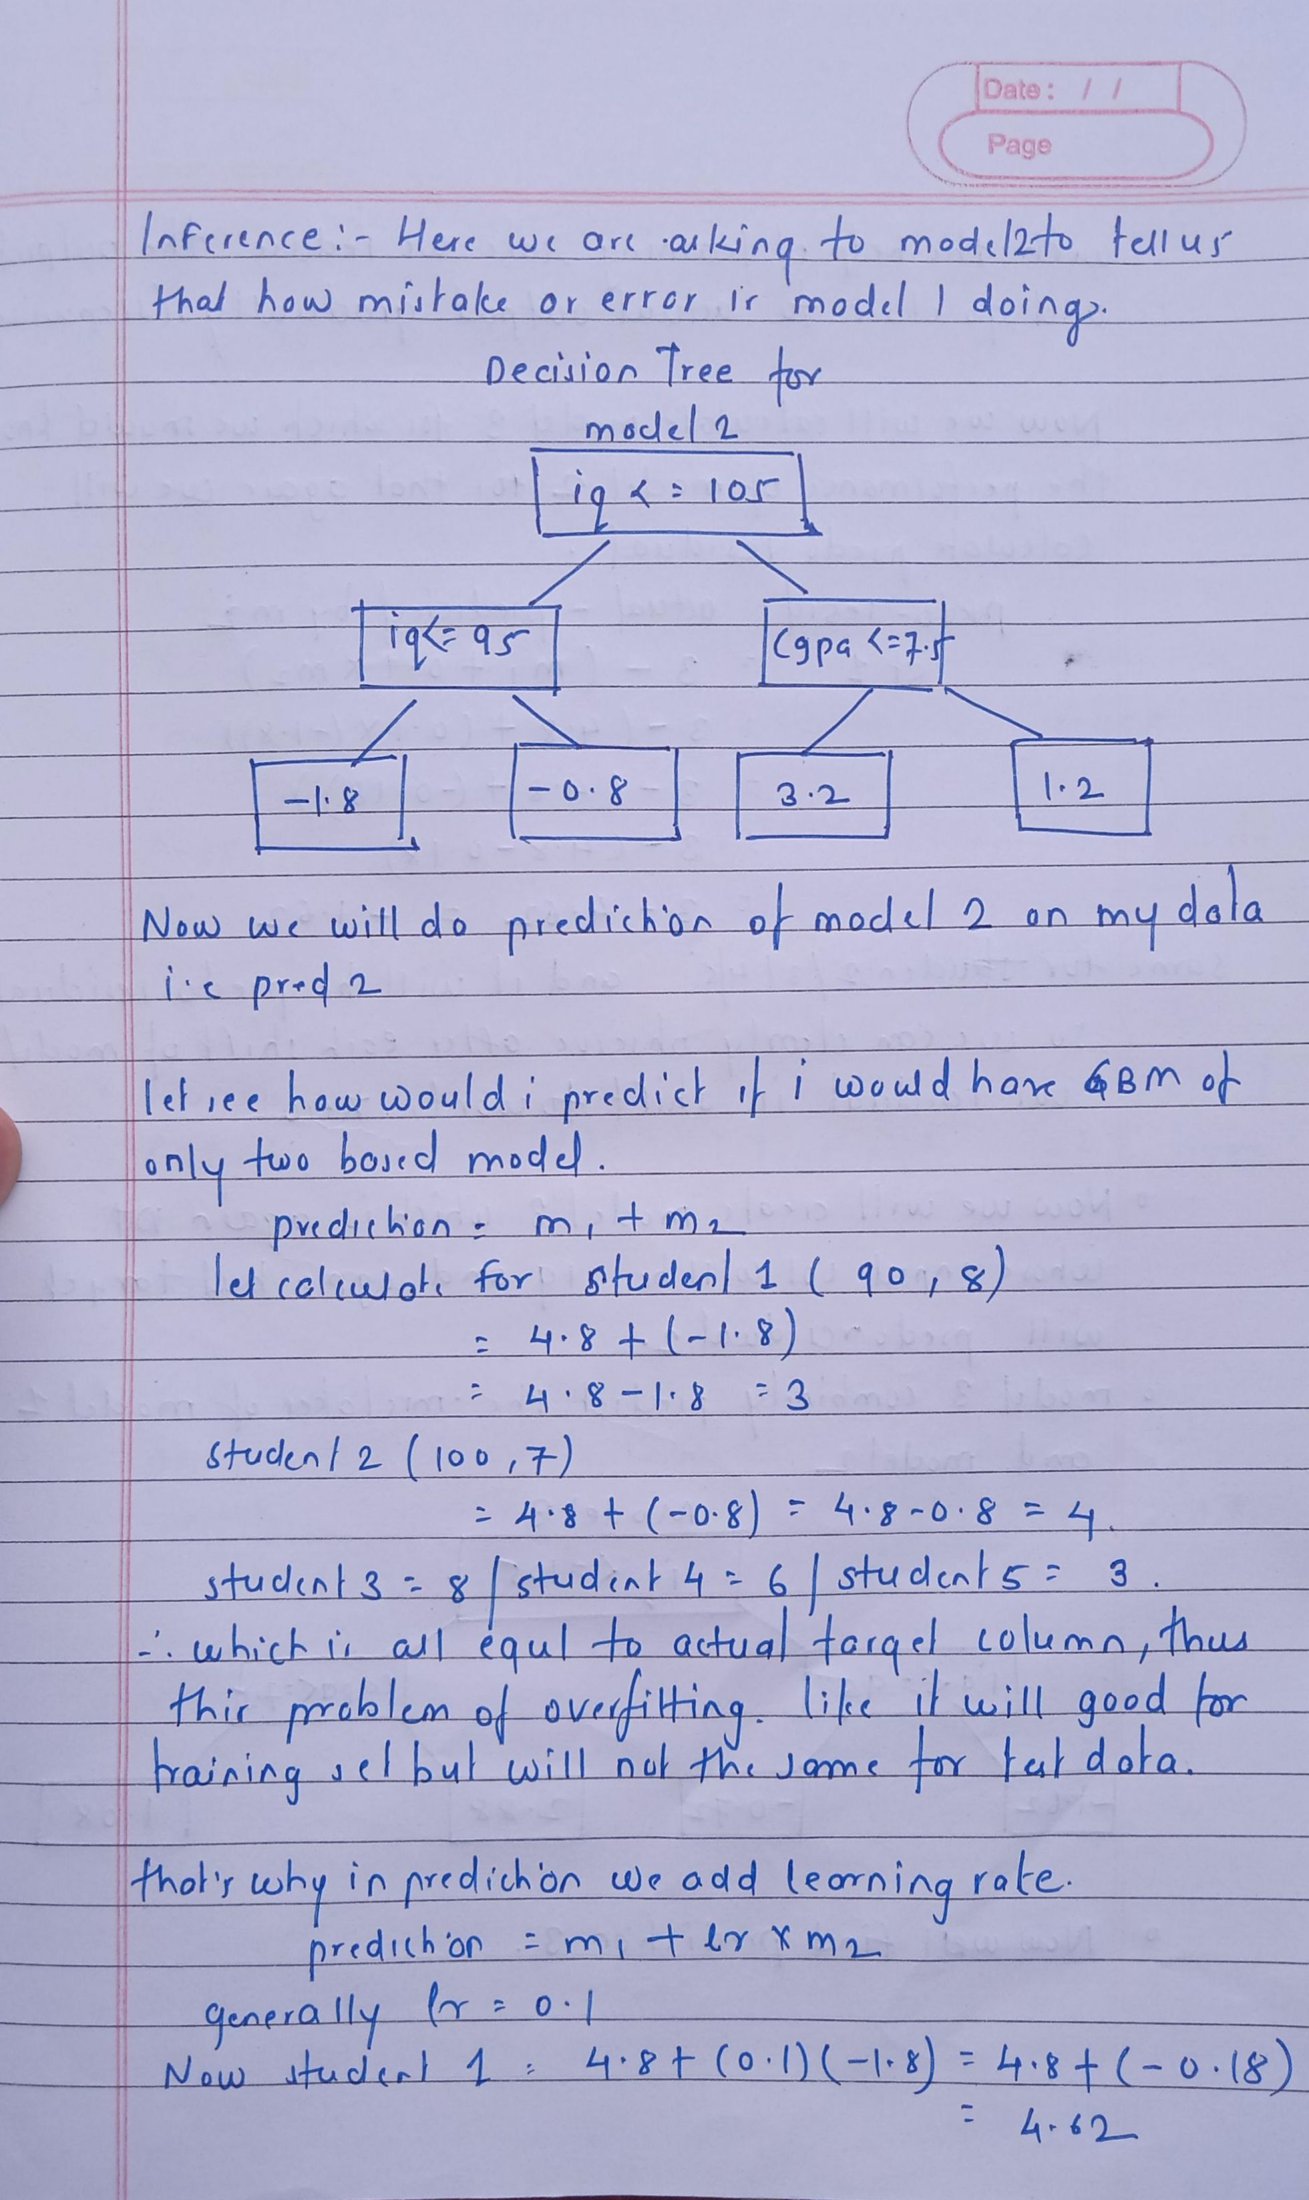 Date: / /
Page
Inference:- Here we are asking to model2to tell us
that how mistake or error is model 1 doing.
Decision Tree for
model 2
iq <= 105
iq<= 95
cgpa <=7.5
-1.8
-0.8
3.2
1.2
Now we will do prediction of model 2 on my data
i.e pred 2
let see how would i predict if i would have GBM of
only two based model.
prediction = m1 + m2
let calculate for student 1 ( 90, 8)
= 4.8 + (-1.8)
= 4.8 - 1.8 = 3
student 2 (100, 7)
= 4.8 + (-0.8) = 4.8-0.8 = 4.
student 3 = 8 / student 4 = 6 / student 5 = 3.
∴ which is all equl to actual target column, thus
this problem of overfitting. like it will good for
training set but will not the same for test data.
that's why in prediction we add learning rate.
prediction = m1 + lr x m2
generally lr = 0.1
Now student 1 = 4.8+ (0.1)(-1.8) = 4.8+(-0.18)
= 4.62